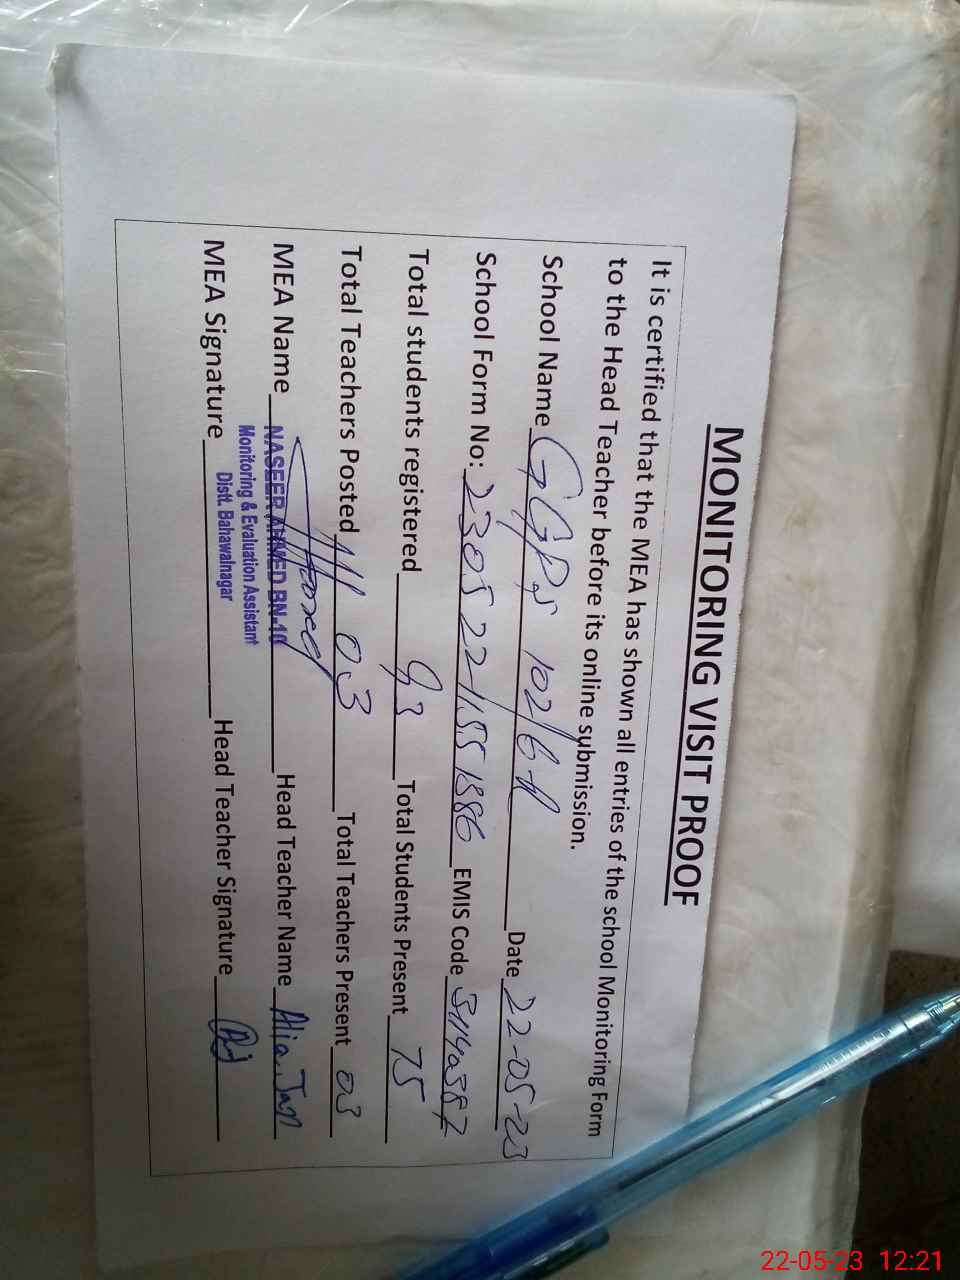 MONITORING VISIT PROOF
It is certified that the MEA has shown all entries of the school Monitoring Form
to the Head Teacher before its online submission.
School Name GGPS 102/6-R Date 22-05-23
School Form No: 230522-1155 1386 EMIS Code
Total students registered 93 Total Students Present 75
Total Teachers Posted 03 Total Teachers Present 03
MEA Name NASEER AHMED BN-10 Head Teacher Name Alia Jan
Monitoring & Evaluation Assistant
Distt. Bahawalnagar
MEA Signature Head Teacher Signature
22-05-23 12:21